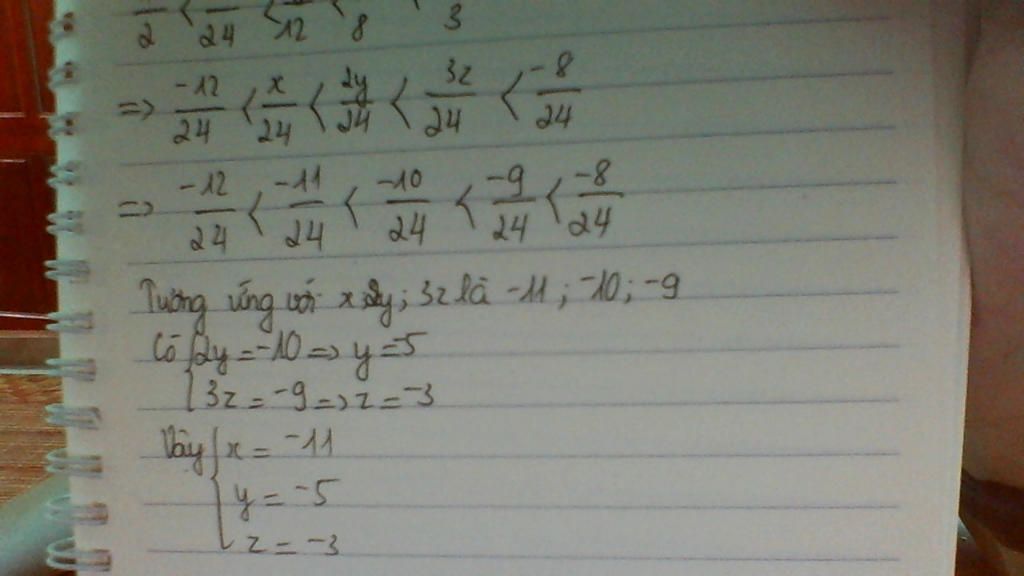 2 < 24 < 12 < 8 < 3
=> -12/24 < x/24 < 2y/24 < 3z/24 < -8/24
=> -12/24 < -11/24 < -10/24 < -9/24 < -8/24
Tương ứng với x; 2y; 3z là -11; -10; -9
Có { 2y = -10 => y = -5
3z = -9 => z = -3
Vậy { x = -11
y = -5
z = -3